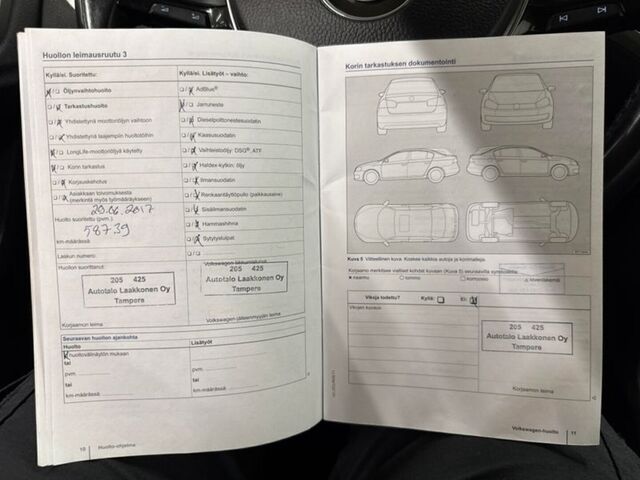 Huollon leimausruutu 3
Kyllä/ei. Suoritettu:
Öljynvaihtohuolto
Tarkastushuolto
Yhdistettynä moottoriöljyn vaihtoon
Yhdistettynä laajempiin huoltotöihin
LongLife-moottoriöljyä käytetty
Korin tarkastus
Korjauskehotus
Asiakkaan toivomuksesta
(merkintä myös työmääräykseen)
Huolto suoritettu (pvm.)
29.06.2017
58739
km-määrässä
Laskun numero:
Huollon suorittanut:
205 425
Autotalo Laakkonen Oy
Tampere
Korjaamon leima
Kyllä/ei. Lisätyöt – vaihto:
AdBlue®
Jarruneste
Dieselpolttonestesuodatin
Kaasusuodatin
Vaihteistoöljy: DSG®, ATF
Haldex-kytkin: öljy
Ilmansuodatin
Renkaantäyttöpullo (paikkausaine)
Sisäilmansuodatin
Hammashihna
Sytytystulpat
205 425
Autotalo Laakkonen Oy
Tampere
Volkswagen-jälleenmyyjän leima
Seuraavan huollon ajankohta
Huolto
Lisätyöt
huoltovälinäytön mukaan
tai
pvm.
pvm.
tai
tai
km-määrässä
km-määrässä
10 Huolto-ohjelma
Korin tarkastuksen dokumentointi
Kuva 5 Viitteellinen kuva. Koskee kaikkia autoja ja korimalleja.
Korjaamo merkitsee vialliset kohdat kuvaan (Kuva 5) seuraavilla symboleilla:
x naarmu
o lommo
Vikoja todettu? Kyllä: Ei:
Vikojen korjaus
205 425
Autotalo Laakkonen Oy
Tampere
Korjaamon leima
Volkswagen-huolto 11